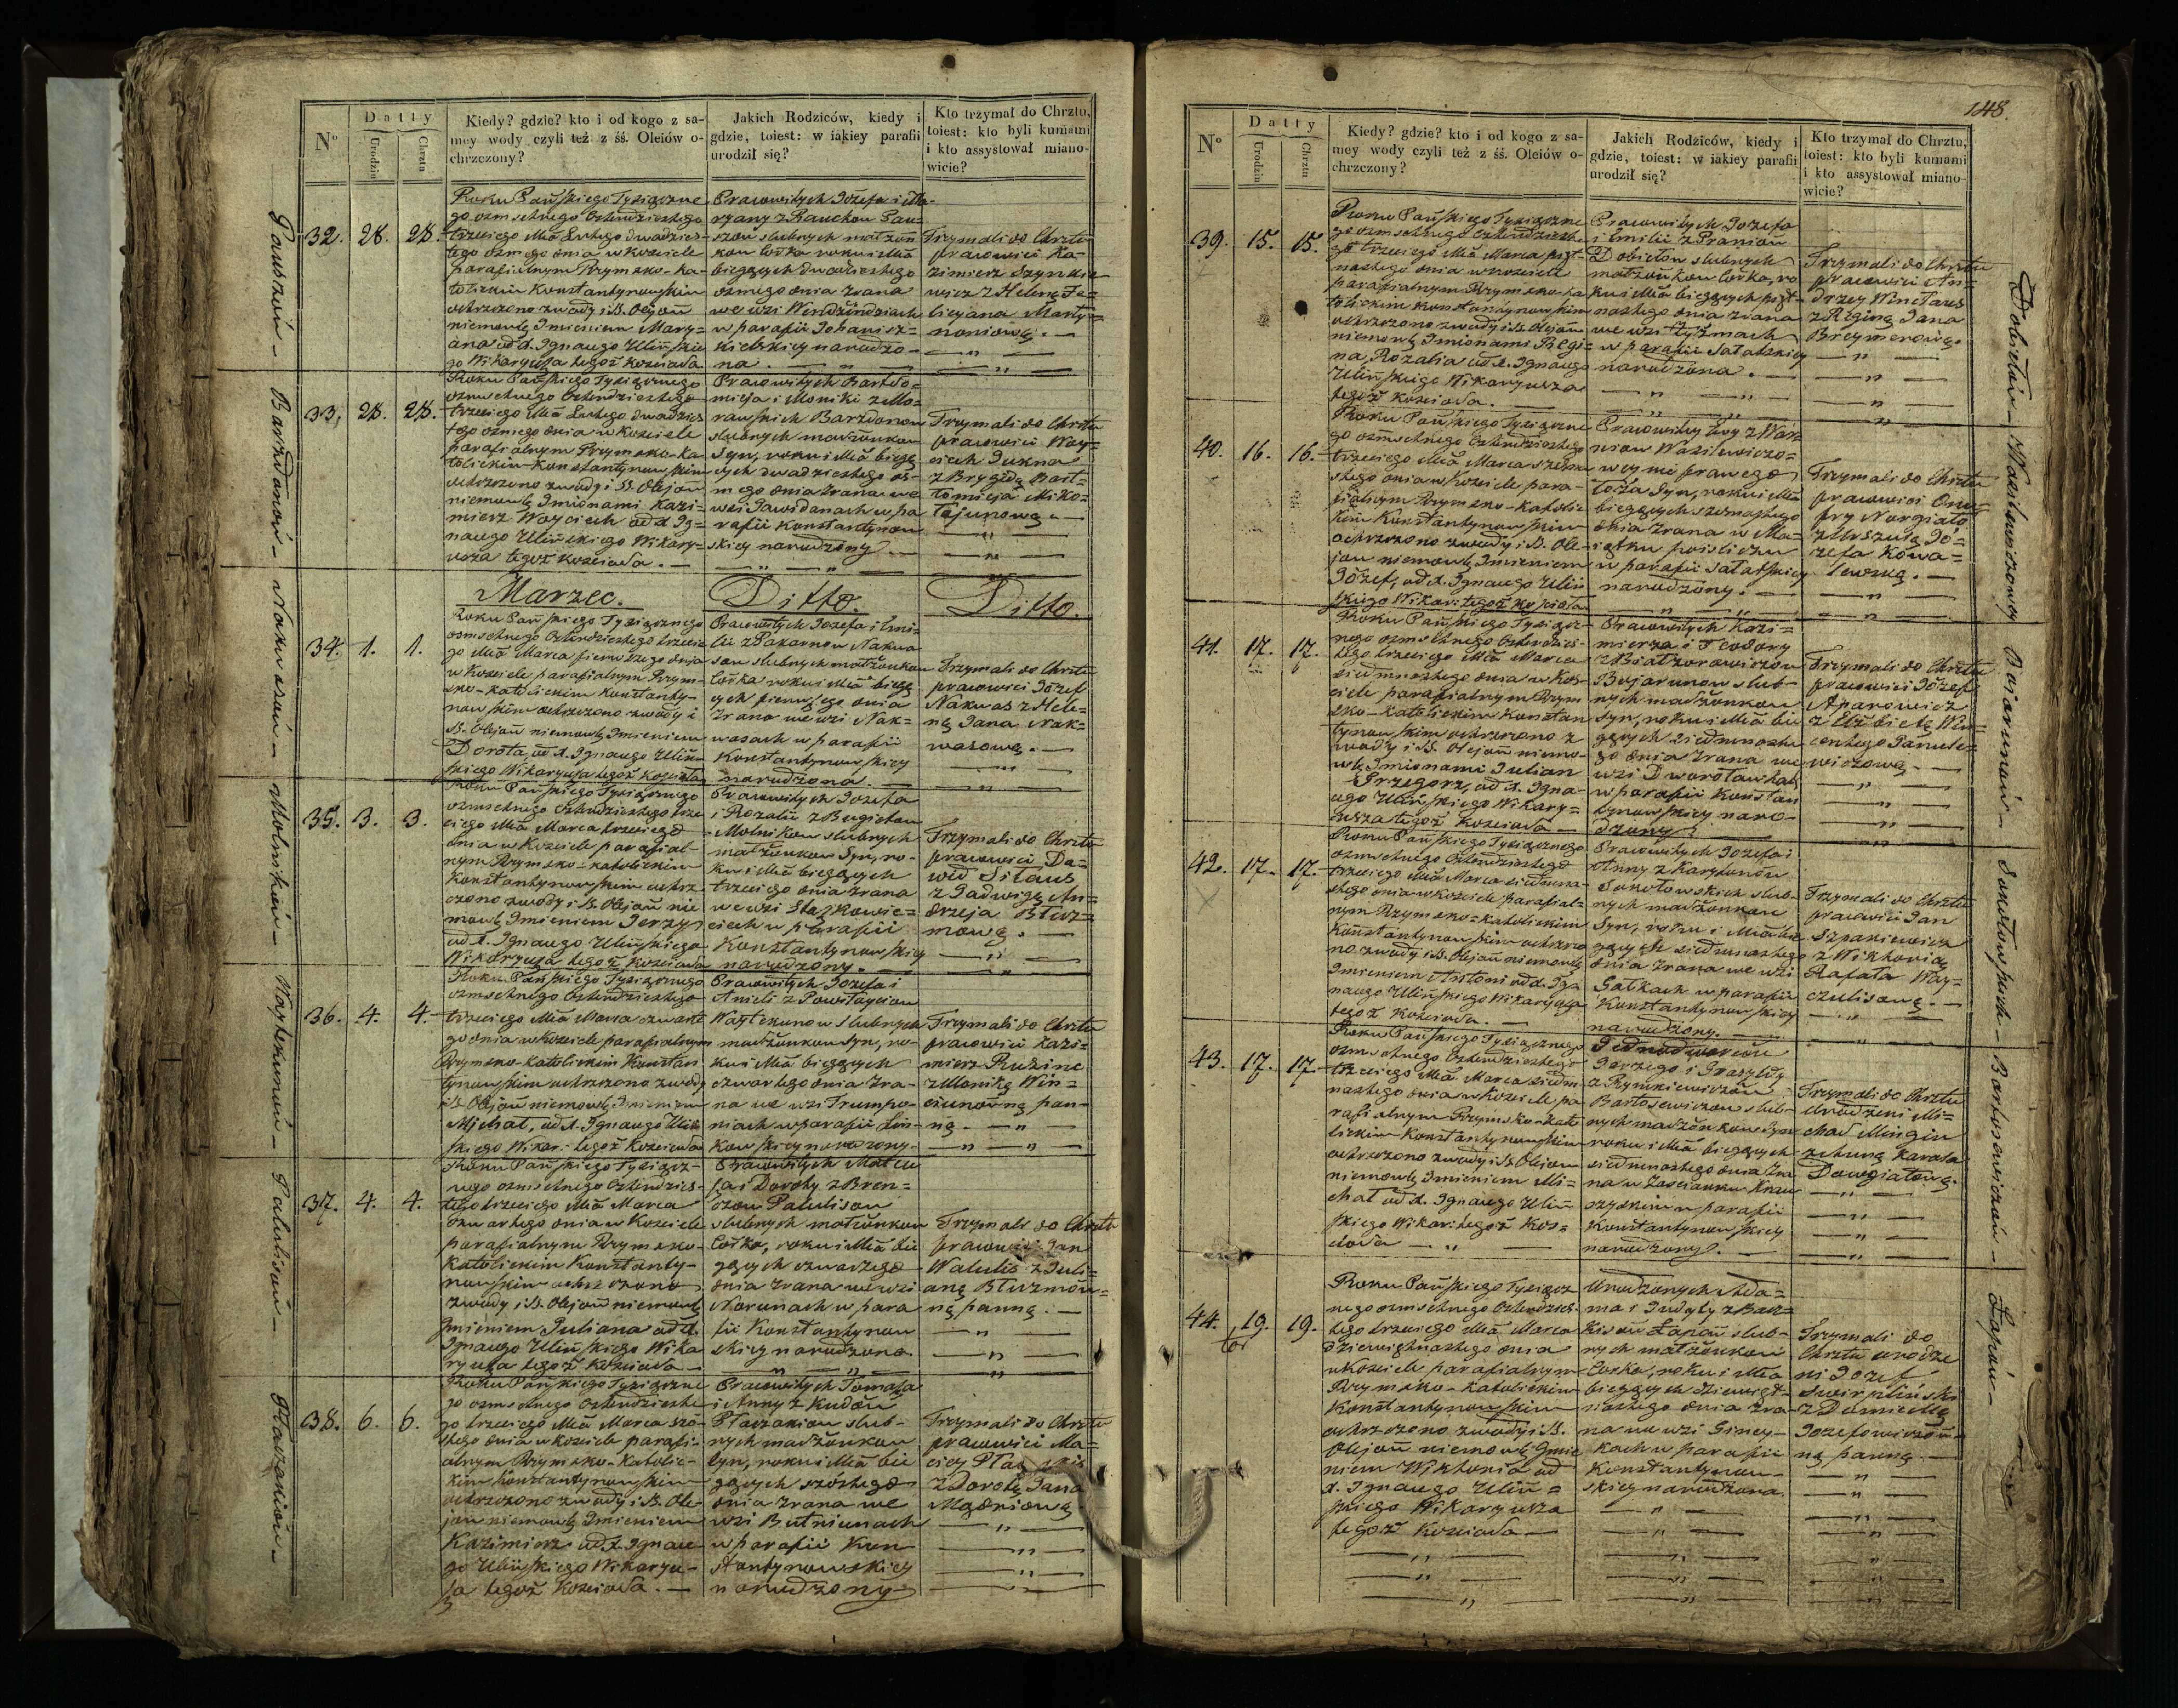 No
Datty
Urodzin
Chrztu
Kiedy? gdzie? kto i od kogo z sa-
mey wody czyli też z śś. Oleiów o-
chrzczony?
Jakich Rodziców, kiedy i
gdzie, toiest: w iakiey parafii
urodził się?
Kto trzymał do Chrztu,
toiest: kto byli kumami
i kto assystował miano-
wicie?
32. 28. 28.
Roku Pańskiego Tysiączne
go osmsetnego Czterdziestego
trzeciego Mca Lutego dwadzies-
tego osmego dnia w Kościele
parafialnym Rzymsko-Ka-
tolickim Konstantynowskim
ochrzczono z wody i SS. Olejow
niemowlę Imieniem Mary=
anna od X. Ignacego Ulińskie
go Wikaryusza tegoż Kościoła
Pracowitych Józefa i Ma-
ryany z Rauchow Pau=
szow slubnych małżon
kow Córka roku i Mca
bieżących dwudziestego
osmego dnia zrana
we wsi
w parafii Johanisz=
kielskiey narodzo-
na.
Trzymali do Chrztu
pracowici Ka-
zimierz Szynkie
wicz z Heleną Fe=
licyana Marty=
noniową. —
33. 28. 28.
Roku Pańskiego Tysiącznego
osmsetnego Czterdziestego
trzeciego Mca Lutego dwadzies
tego osmego dnia w Kościele
parafialnym Rzymsko-Ka-
tolickim Konstantynowskim
ochrzczono z wody i SS. Olejow
niemowlę Imionami Kazi=
mierz Woyciech od X. Ig=
nacego Ulińskiego Wikary=
usza tegoż Kościoła. —
Pracowitych Bartło=
mieja i Moniki z Mo=
rawskich Barzdonow
slubnych małżonkow
Syn, roku i Mca bieżą
cych dwudziestego os=
mego dnia zrana we
wsi Jawidanach w pa
rafii Konstantynow
skiey narodzony —
Trzymali do Chrztu
pracowici Woy=
ciech Jukna
z Brygidą Bart=
łomieja Miko=
łajunową. —
Marzec.
Ditto.
Ditto.
34. 1. 1.
Roku Pańskiego Tysiącznego
osmsetnego Czterdziestego trzecie
go Mca Marca pierwszego dnia
w Kościele parafialnym Rzym-
sko-Katolickim Konstanty-
nowskim ochrzczono z wody i
SS. Olejow niemowlę Imieniem
Dorota, od X. Ignacego Ulin
skiego Wikaryusza tegoż Kościoła
Pracowitych Jozefa i Emi=
lii z Pakarnow Nakwa
sow slubnych małżonkow
Córka roku i Mca bieżą
cych pierwszego dnia
zrana we wsi Nak=
wasach w parafii
Konstantynowskiey
narodzona. —
Trzymali do Chrztu
pracowici Józef
Nakwas z Hele=
ną Jana Nak=
wasową. —
35. 3. 3.
Roku Pańskiego Tysiącznego
osmsetnego Czterdziestego trze
ciego Mca Marca trzeciego
dnia w Kościele parafial-
nym Rzymsko-Katolickim
Konstantynowskim ochrz-
czono z wody i SS. Olejow nie
mowlę Imieniem Jerzy
od X. Ignacego Ulińskiego
Wikaryusza tegoż Kościoła
Pracowitych Jozefa
i Rozalii z Bugietow
Molnikow slubnych
małżonkow Syn, ro-
ku i Mca bieżących
trzeciego dnia zrana
we wsi Staszkowie=
ciach w parafii
Konstantynowskiey
narodzony. —
Trzymali do Chrztu
pracowici Da=
wid Sitaus
z Jadwigą An=
drzeja Bluz=
mową. —
36. 4. 4.
Roku Pańskiego Tysiącznego
osmsetnego Czterdziestego
trzeciego Mca Marca czwarte
go dnia w Kościele parafialnym
Rzymsko-Katolickim Konstan
tynowskim ochrzczono z wody
i SS. Olejow niemowlę Imieniem
Michał, od X. Ignacego Ulin
skiego Wikar: tegoż Kościoła
Pracowitych Jozefa i
Anieli z Powiłayciow
Waytekunow slubnych
małżonkow Syn, ro-
ku i Mca bieżących
czwartego dnia zra-
na we wsi Trumpo-
niach w parafii Lin=
kowskiey narodzony.
Trzymali do Chrztu
pracowici Kazi=
mierz Ruzine
z Moniką Win=
ciunówną pan-
ną. —
37. 4. 4.
Roku Pańskiego Tysiącz-
nego osmsetnego Czterdzies-
tego trzeciego Mca Marca
czwartego dnia w Kościele
parafialnym Rzymsko-
Katolickim Konstanty-
nowskim ochrzczono
z wody i SS. Olejow niemowlę
Imieniem Juliana od X.
Ignacego Ulińskiego Wika
ryusza tegoż Kościoła —
Pracowitych Mateu
sza i Doroty z Bren=
czow Palulisow
slubnych małżonkow
Córka, roku i Mca bie
żących czwartego
dnia zrana we wsi
Norunach w para
fii Konstantynow
skiey narodzona.
Trzymali do Chrztu
pracowici Jan
Walulis z Juli=
aną Bluzmów=
ną panną. —
38. 6. 6.
Roku Pańskiego Tysiączne
go osmsetnego Czterdzieste
go trzeciego Mca Marca szó-
stego dnia w Kościele parafi-
alnym Rzymsko-Katolic-
kim Konstantynowskim
ochrzczono z wody i SS. Ole-
jow niemowlę Imieniem
Kazimierz od X. Ignace
go Ulińskiego Wikaryu-
sza tegoż Kościoła. —
Pracowitych Tomasza
i Anny z Kudow
Płaczakow slub-
nych małżonkow
Syn, roku i Mca bie
żących szóstego
dnia zrana we
wsi Butniunach
w parafii Kon
stantynowskiey
narodzony
Trzymali do Chrztu
pracowici Ma=
ciey
z Dorotą Jana
Mażniową.
Pauszów — Barzdonów — Nakwasów — Molników — Waytekunów — Palulisów — Płaczaków —
148.
No
Datty
Urodzin
Chrztu
Kiedy? gdzie? kto i od kogo z sa-
mey wody czyli też z śś. Oleiów o-
chrzczony?
Jakich Rodziców, kiedy i
gdzie, toiest: w iakiey parafii
urodził się?
Kto trzymał do Chrztu,
toiest: kto byli kumami
i kto assystował miano-
wicie?
39. 15. 15.
Roku Pańskiego Tysiączne
go osmsetnego Czterdzieste
go trzeciego Mca Marca pięt-
nastego dnia w Kościele
parafialnym Rzymsko-Ka
tolickim Konstantynowskim
ochrzczono z wody i SS. Olejow
niemowlę Imionami Regi=
na, Rozalia od X. Ignacego
Ulińskiego Wikaryusza
tegoż Kościoła. —
Pracowitych Jozefa
i Emilii z Praniow
Dobietow slubnych
małżonkow Córka, ro
ku i Mca bieżących pięt-
nastego dnia zrana
we wsi Tyżmach
w parafii Sałatskiey
narodzona. —
Trzymali do Chrztu
pracowici An=
drzey Winclaus
z Reginą Jana
Breymerową.
40. 16. 16.
Roku Pańskiego Tysiączne
go osmsetnego Czterdziestego
trzeciego Mca Marca szesna
stego dnia w Kościele para-
fialnym Rzymsko-Katolic
kim Konstantynowskim
ochrzczono z wody i SS. Ole-
jow niemowlę Imieniem
Józef, od X. Ignacego Ulin
skiego Wikar: tegoż Kościoła
Pracowitey Ewy z War
niow Wasilewiczo=
wey nie prawego
łoża Syn, roku i Mca
bieżących szesnastego
dnia zrana w Ma=
iątku
w parafii Sałatskiey
narodzony. —
Trzymali do Chrztu
pracowici Onu
fry Norgiało
z Urszulą Jó=
zefa Kowa=
lewską. —
41. 17. 17.
Roku Pańskiego Tysiącz-
nego osmsetnego Czterdzies-
tego trzeciego Mca Marca
siedmnastego dnia w Koś-
ciele parafialnym Rzym
sko-Katolickim Konstan
tynowskim ochrzczono z
wody i SS. Olejow niemo-
wlę Imionami Julian
Grzegorz, od X. Igna-
cego Ulińskiego Wikary=
usza tegoż Kościoła —
Pracowitych Kazi=
mierza i Teodory
z Białzorowiczow
Bojarunow slub-
nych małżonkow
Syn, roku i Mca bie
żących siedmnaste
go dnia zrana we
wsi Dworoławkach
w parafii Konstan
tynowskiey naro-
dzony.
Trzymali do Chrztu
pracowici Józef
Aparowicz
z Elżbietą Win
centego Janule=
wiczową. —
42. 17. 17.
Roku Pańskiego Tysiącznego
osmsetnego Czterdziestego
trzeciego Mca Marca siedmna-
stego dnia w Kościele parafial-
nym Rzymsko-Katolickim
Konstantynowskim ochrzczo
no z wody i SS. Olejow niemowlę
Imieniem Antoni od X. Ig=
nacego Ulińskiego Wikaryusza
tegoż Kościoła. —
Pracowitych Jozefa i
Anny z Karytonow
Sokołowskich slub-
nych małżonkow
Syn, roku i Mca bie
żących siedmnastego
dnia zrana we wsi
Gaikach w parafii
Konstantynowskiey
narodzony. —
Trzymali do Chrztu
pracowici Jan
Szpakiewicz
z Wiktorią
Rafała Way=
czulisową. —
43. 17. 17.
Roku Pańskiego Tysiącznego
osmsetnego Czterdziestego
trzeciego Mca Marca siedm
nastego dnia w Kościele pa
rafialnym Rzymsko-Kato
lickim Konstantynowskim
ochrzczono z wody i SS. Olejow
niemowlę Imieniem Mi=
chał od X. Ignacego Ulin
skiego Wikar: tegoż Koś=
cioła —
Jednodworców
Jerzego i Praxedy
z Rymkiewiczow
Bartosewiczow slub-
nych małżonkow Syn
roku i Mca bieżących
siedmnastego dnia zra
na w Zascianku
w parafii
Konstantynowskiey
narodzony. —
Trzymali do Chrztu
Urodzeni Mi=
chał Mingin
z Anną Karola
Dowgiałową.
44. 19. 19.
Roku Pańskiego Tysiącz
nego osmsetnego Czterdzies-
tego trzeciego Mca Marca
dziewiętnastego dnia
w Kościele parafialnym
Rzymsko-Katolickim
Konstantynowskim
ochrzczono z wody i SS.
Olejow niemowlę Imie
niem Wiktoria od
X. Ignacego Ulin=
skiego Wikaryusza
tegoż Kościoła —
Urodzonych Ada=
ma i Judyty z Bac=
kisow Łapow slub-
nych małżonkow
Córka, roku i Mca
bieżących dziewięt-
nastego dnia zra-
na we wsi Girey-
kach w parafii
Konstantynow-
skiey narodzona.
Trzymali do
Chrztu urodze
ni Jozef
Swirpliński
z Domicellą
Jozefowiczów-
ną panną. —
Dobietów — Wasilewiczowey — Bojarunów — Sokołowskich — Bartosewiczów — Łapów —